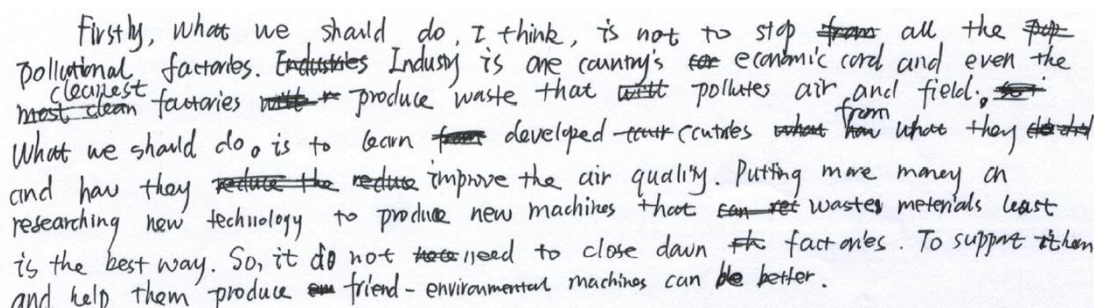 Firstly, what we should do, I think, is not to stop all the
pollutional factories. Industry is one country's economic cord and even the
cleanest factories produce waste that pollutes air and field.
What we should do, is to learn from developed countries what they did
and how they improve the air quality. Putting more money on
researching new technology to produce new machines that wastes meterials least
is the best way. So, it do not need to close down factories. To support them
and help them produce friend-environmental machines can be better.